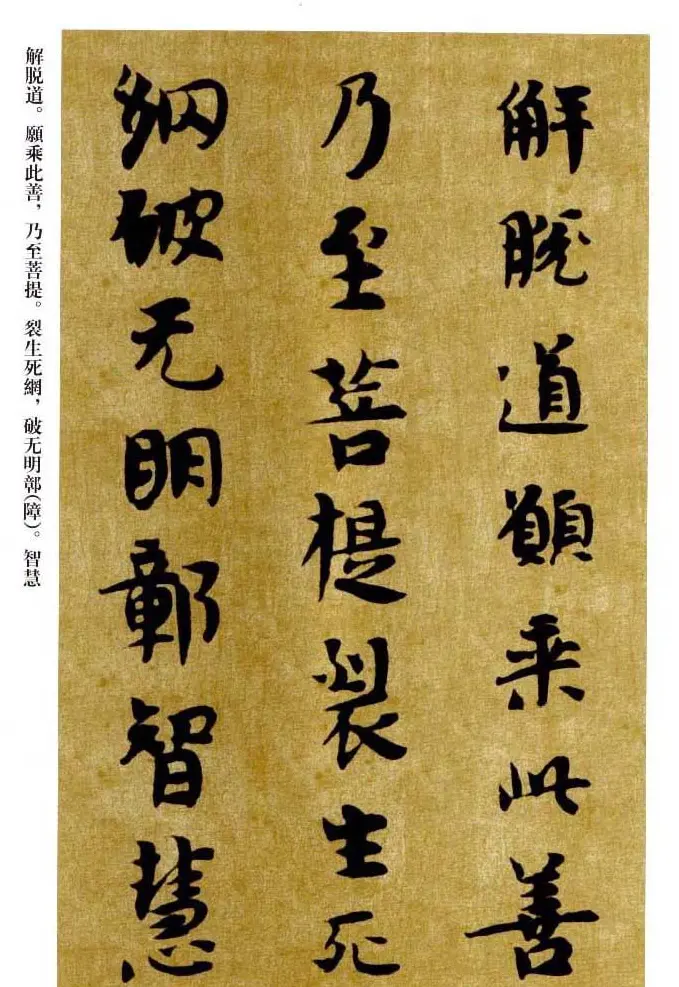 解脱道願乘此善
乃至菩提裂生死
網破无明鄣智慧
解脱道。願乘此善，乃至菩提。裂生死網，破无明鄣(障)。智慧